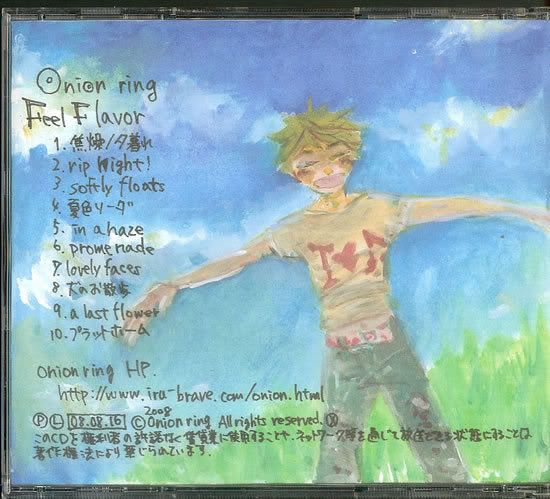 Onion ring
Feel Flavor
1. 焦燥/夕暮れ
2. rip Night!
3. softly floats
4. 夏色リーダ
5. in a haze
6. promenade
7. lovely faces
8. 犬のお散歩
9. a last flower
10. プラットホーム
I♥♪
onion ring HP.
http://www.ira-brave.com/onion.html
Ⓟ Ⓛ 08.08.16 Ⓒ2008 Onion ring All rights reserved. Ⓧ
このCDを権利者の許諾なく賃貸業に使用すること、ネットワーク等を通じて放送できる状態にすることは
著作権法により禁じられています。